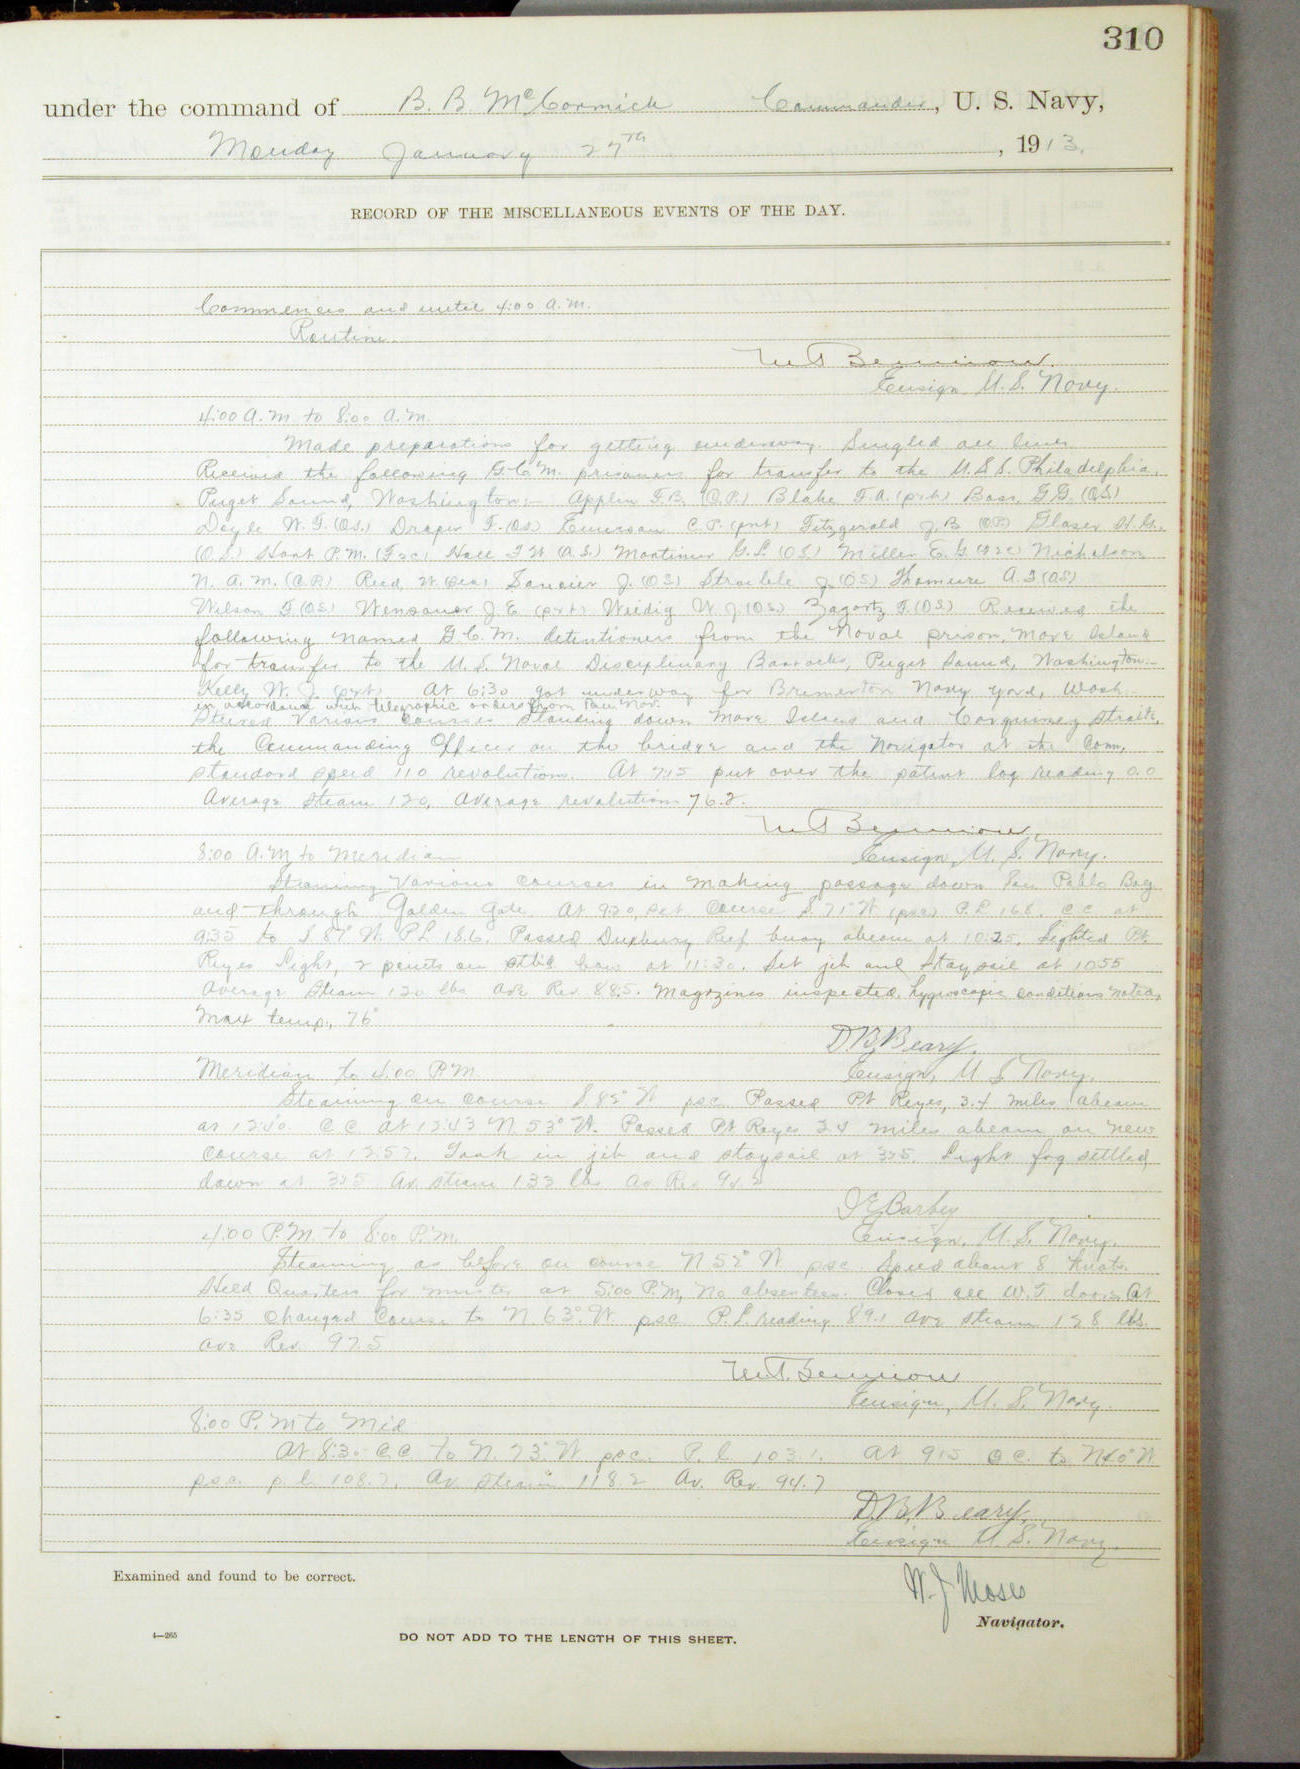 310
under the command of B. B. McCormick Commander, U. S. Navy,
Monday January 27th, 1913.
RECORD OF THE MISCELLANEOUS EVENTS OF THE DAY.
Commences and until 4:00 a.m.
Routine.
Ensign U.S. Navy.
4:00 A.M to 8:00 A.M.
Made preparations for getting underway. Singled all lines
Received the following G.C.M. prisoners for transfer to the U.S.S. Philadelphia,
Puget Sound, Washington:- F.B. Blake F.A. (pvt) Bass, G.G. (OS)
Doyle W.F. (OS.) Draper F. (OS) Emerson C.P. (pvt) Fitzgerald J.B Glaser H.G.
(O.S.) Hart P.M. Hall (A.S.) Mortimer G.L (OS) Miller E.G. Nicholson
N. A. M. Reed, W. J. (OS) Straible J (OS) A.J. (OS)
Wilson F (OS) J.E (pvt) Weidig W.J (OS) Zagortz F. (OS) Received the
following named G.C.M. detentioners from the Naval prison, Mare Island
for transfer to the U.S. Naval Disciplinary Barracks, Puget Sound, Washington:-
Kelly W. J. (pvt). At 6:30 got underway for Bremerton Navy Yard, Wash.
in accordance with telegraphic orders from Bau Nav.
Steered various courses standing down Mare Island and Carquinez straits,
the Commanding Officer on the bridge and the Navigator at the Conn,
standard speed 110 revolutions. At 7:15 put over the patent log reading 0.0
Average steam 120, average revolutions 76.2.
Ensign, U. S. Navy.
8:00 A.M to Meridian
Steaming various courses in making passage down San Pablo Bay
and through Golden Gate. At 9:20, set course S 71° W (psc) P.L 16.8. c.c. at
9:35 to S 87° W PL 18.6. Passed Duxbury Reef buoy abeam at 10:25. Sighted Pt.
Reyes Light, 2 points on stbd bow at 11:30. Set jib and staysail at 10:55
Average steam 120 lbs ave Rev. 88.5. Magazines inspected, hygroscopic conditions noted,
Max temp., 76°
D.B. Beary.
Ensign, U S Navy.
Meridian to 4:00 P.M.
Steaming on course W psc. Passed Pt Reyes, 3.4 miles abeam
at C C at 12:43 N 53° W. Passed Pt Reyes miles abeam on new
course at 12:57. Took in jib and staysail at 3:25. Light fog settled
down at Av. steam 133 lbs Av Rev
Barbey
Ensign, U.S. Navy.
4:00 P.M. to 8:00 P.M.
Steaming as before on course N 52° W psc. Speed about 8 knots.
Held Quarters for muster at 5:00 P.M, no absentees. Closed all W.T doors. At
6:35 changed course to N 63° W. psc P.L. reading 89.1 ave steam 128 lbs.
ave Rev. 92.5
Ensign, U. S. Navy.
8:00 P.M to Mid
At 8:30 C.C. to N. 73° W psc. P.L 103.1. At 9:15 C.C. to W
psc. p.l. 108.7. Av steam 118.2 Av. Rev. 94.7
D.B. Beary.
Ensign U. S. Navy.
Examined and found to be correct.
W. J Moses
Navigator.
4—265
DO NOT ADD TO THE LENGTH OF THIS SHEET.